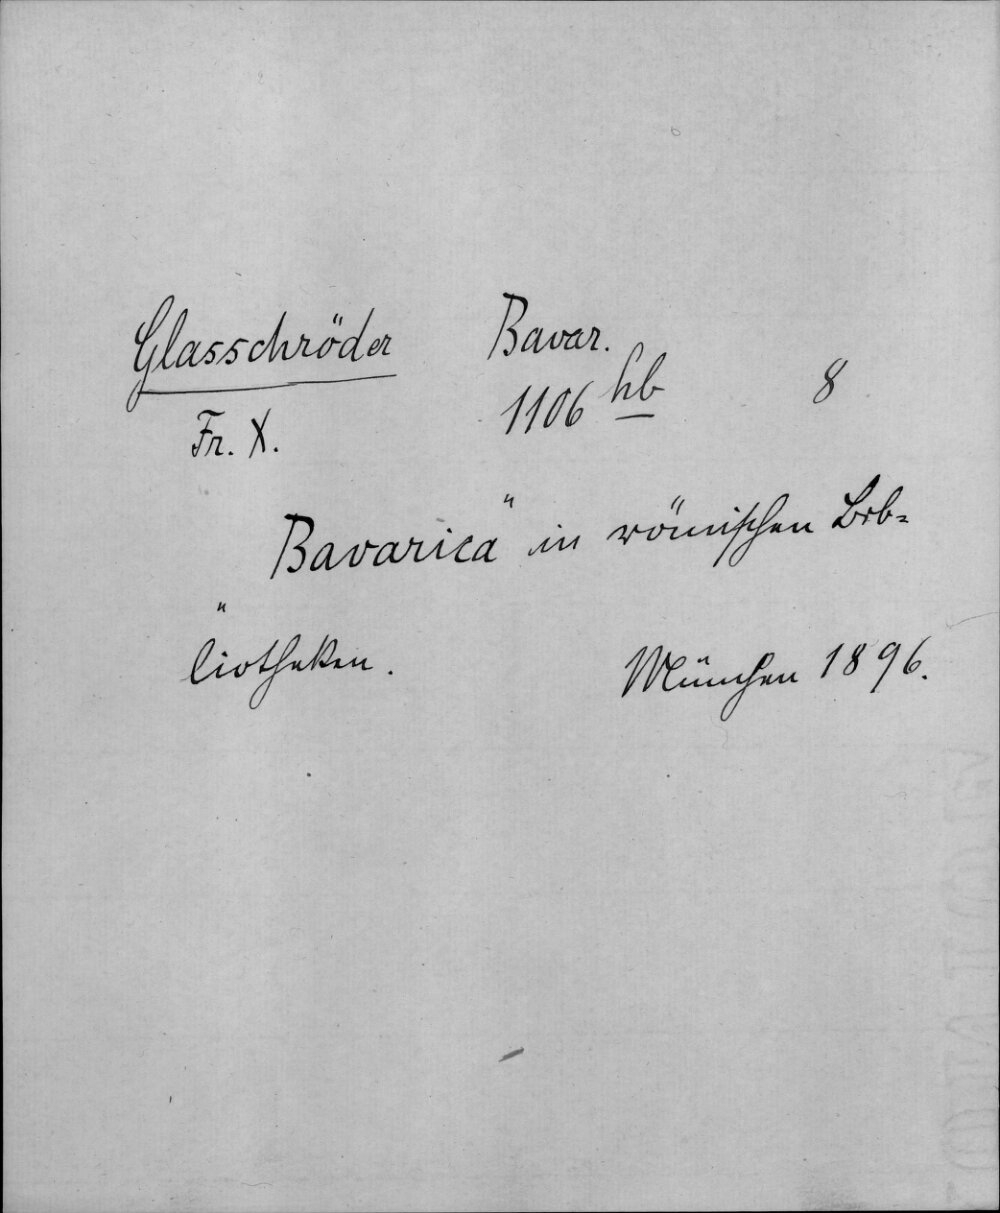 Glasschröder Bavar.
Fr. X. 1106 hb 8
"Bavarica" in römischen Bib=
liotheken. München 1896.